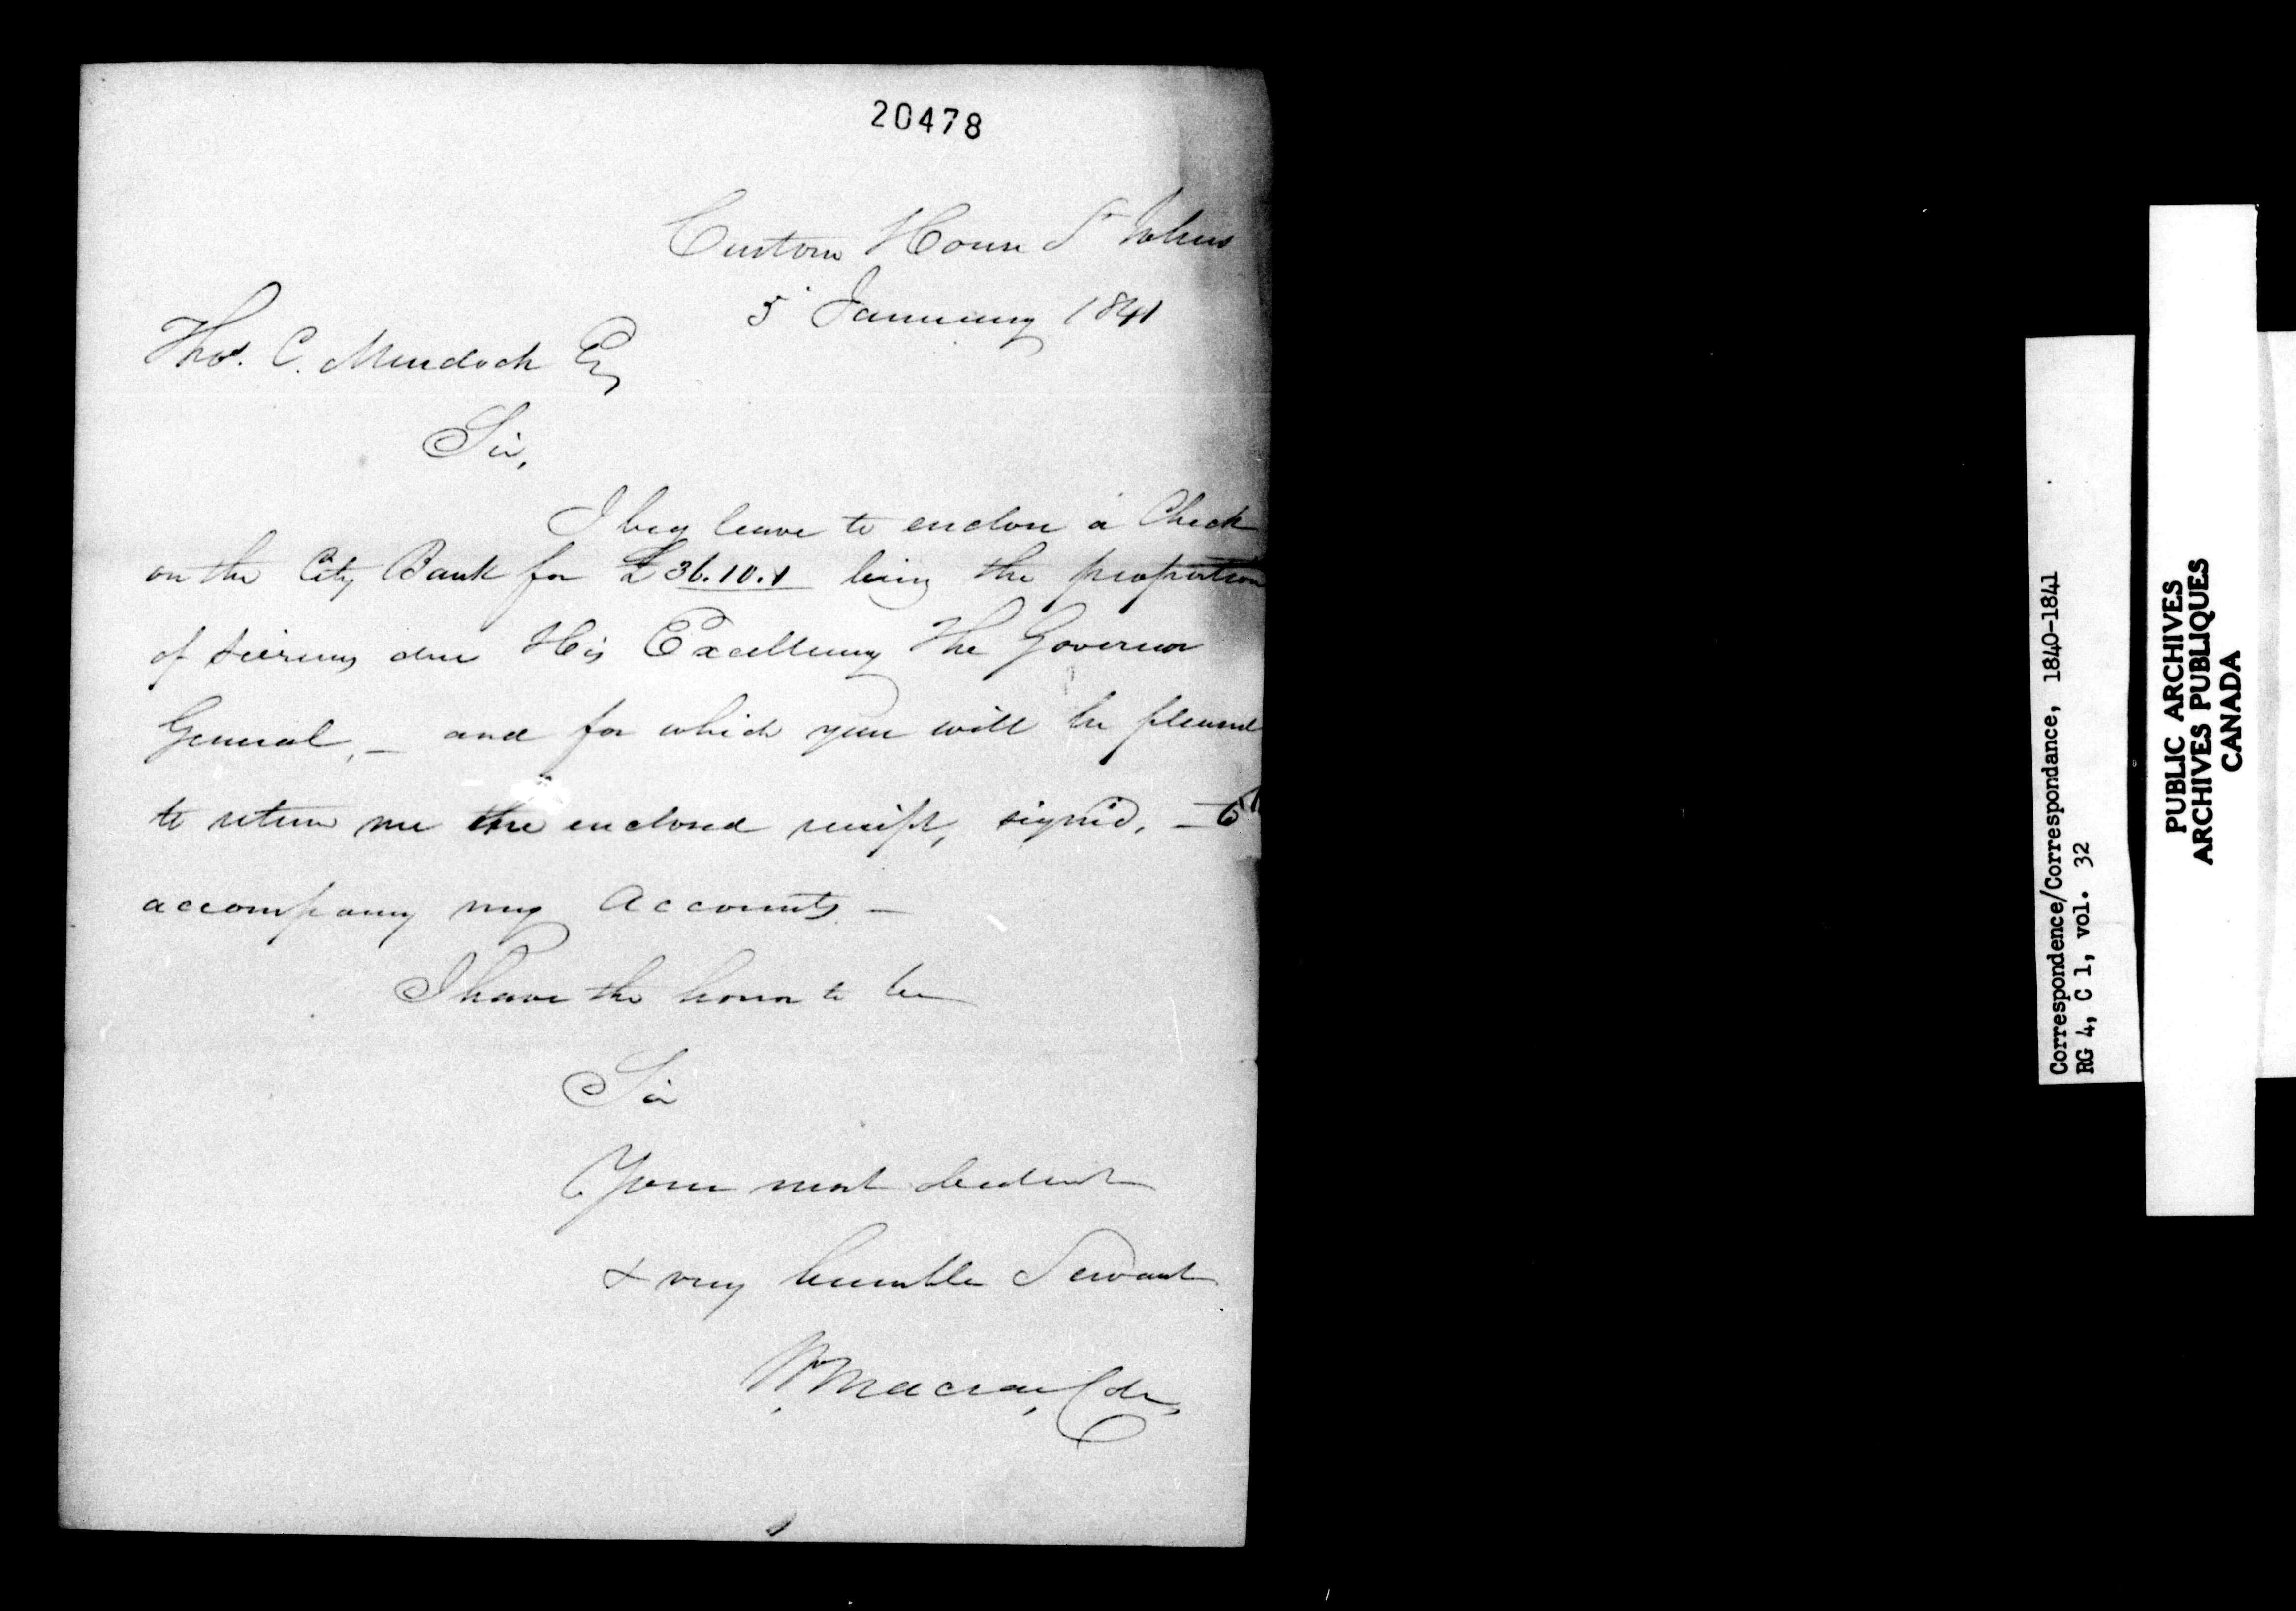 20478
Custom House St Johns
5 January 1841
Thos. C. Murdoch Esq
Sir,
I beg leave to enclose a Check
on the City Bank for £36.10.1 being the proportion
of seizures due His Excellency The Governor
General, – and for which you will be pleased
to return me the enclosed receipt, signed, – to
accompany my Accounts –
I have the honor to be
Sir
Your most obedient
& very humble Servant
W Macrae,
Correspondence/Correspondance, 1840-1841
RG 4, C 1, vol. 32
PUBLIC ARCHIVES
ARCHIVES PUBLIQUES
CANADA